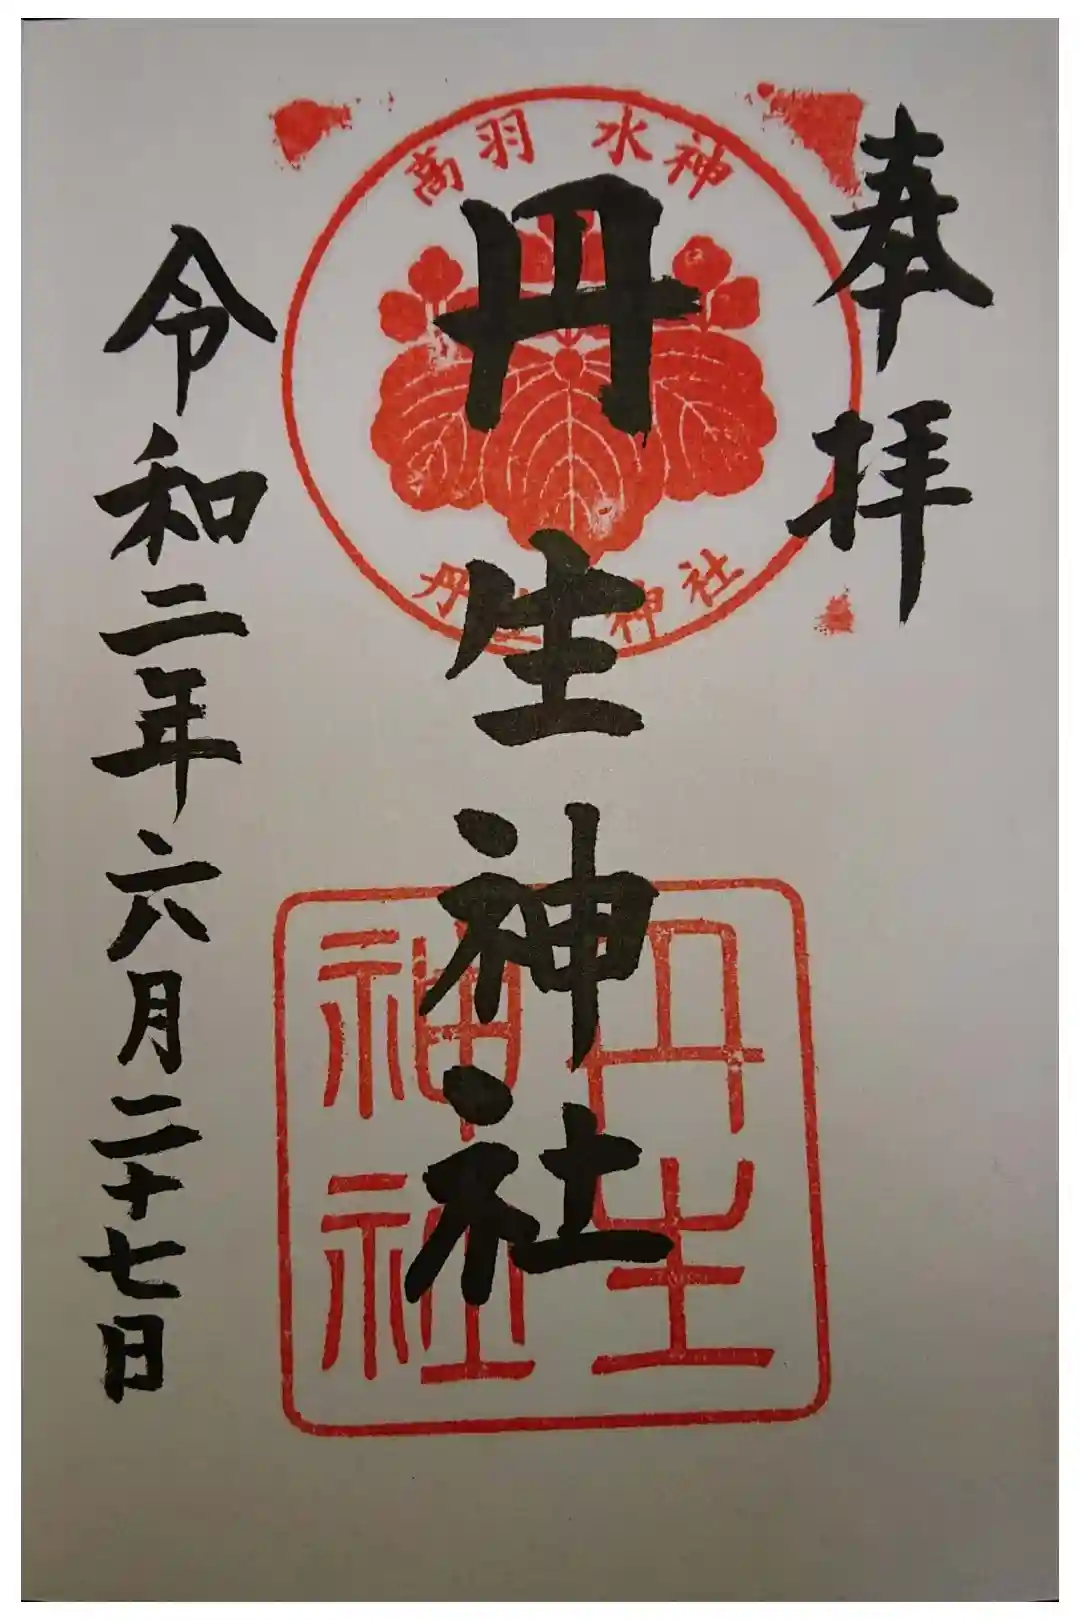 奉拝
高羽水神
丹生神社
丹生神社
丹生神社
令和二年六月二十七日